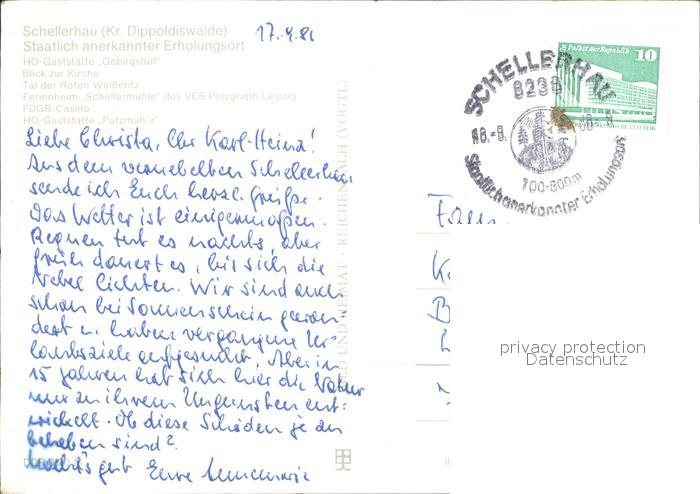 Schellerhau (Kr. Dippoldiswalde)
Staatlich anerkannter Erholungsort
17.9.86
HO-Gaststätte „Gebirgshof"
Blick zur Kirche
Tal der Roten Weißeritz
Ferienheim „Schellermühle" des VEB Polygraph Leipzig
FDGB-Casino
HO-Gaststätte „Putzmühle"
Liebe Christa, lbr Karl-Heinz!
Aus dem vernebelten Schellerhau
sende ich Euch herzl. Grüße.
Das Wetter ist einigermaßen.
Regnen tut es nachts, aber
früh dauert es, bis sich die
Nebel lichten. Wir sind auch
schon bei Sonnenschein gewan-
dert u. haben vergangene Ur-
laubsziele aufgesucht. Aber in
15 Jahren hat sich hier die Natur
nur zu ihrem Ungunsten ent-
wickelt. Ob diese Schäden je zu
beheben sind?
Macht's gut Eure Annemarie
BILD UND HEIMAT · REICHENBACH (VOGTL)
Palast der Republik
10
SCHELLERHAU
8238
700-800m
Staatlich anerkannter Erholungsort
Fam.
K
B
privacy protection
Datenschutz